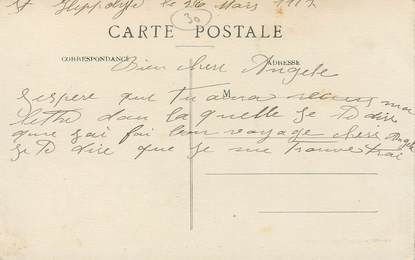 St Hippolyte le 26 Mars 1917
30
CARTE POSTALE
CORRESPONDANCE
ADRESSE
Bien chere Angele
Jespere que tu aura recus ma
M
lettre dan la quelle je te dise
que jai fai bon voyage chere Angele
je te dire que je me trouve trai